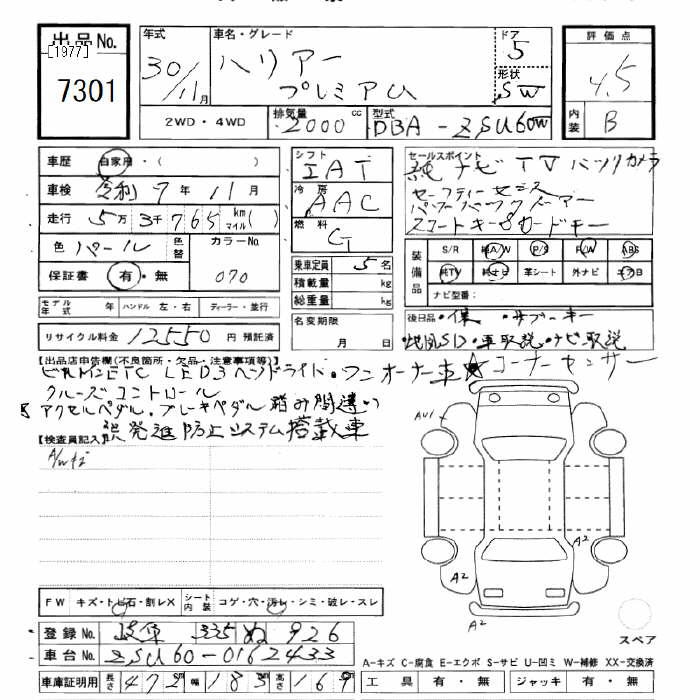 出品No.
[1977]
7301
年式
30/11月
車名・グレード
ハリアー
プレミアム
ドア
5
形状
SW
評価点
4.5
内装
B
2WD・4WD
排気量
2000cc
型式
DBA-ZSU60W
車歴 自家用・( )
車検 令和7年11月
走行 5万3千765km マイル( )
色 パール
色替
カラーNo
070
保証書 有・無
モデル年式 年 ハンドル 左・右 ディーラー・並行
リサイクル料金 12550円 預託済
シフト
IAT
冷房
AAC
燃料
G
乗車定員 5名
積載量 kg
総重量 kg
名変期限
月 日
セールスポイント
純ナビTVバックカメラ
セーフティセンス
パワーバックドアー
スマートキー
カードキー
装備品
S/R 純A/W P/S P/W ABS
純TV 純ナビ 革シート 外ナビ エアB
ナビ型番:
後日品・保・サブキー
・地図SD・車取説・ナビ取説
【出品店申告欄(不良箇所・欠品・注意事項等)】
ビルトインETC LEDヘッドライト・ワンオーナー車 ☆コーナーセンサー
クルーズコントロール
アクセルペダル・ブレーキペダル踏み間違い
誤発進防止システム搭載車
【検査員記入】
A/Wキズ
AU1
A2
A2
A2
FW キズ・トビ石・割レX シート内装 コゲ・穴・汚レ・シミ・破レ・スレ
登録No. 岐阜 335 ぬ 926
車台No. ZSU60-0162433
車庫証明用 長さ 472 幅 183 高さ 169
スペア
A-キズ C-腐食 E-エクボ S-サビ U-凹ミ W-補修 XX-交換済
工具 有・無 ジャッキ 有・無